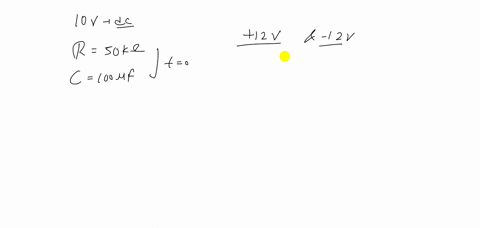 10V + dc
R = 50kΩ
C = 100μf
t=0
+12V & -12V